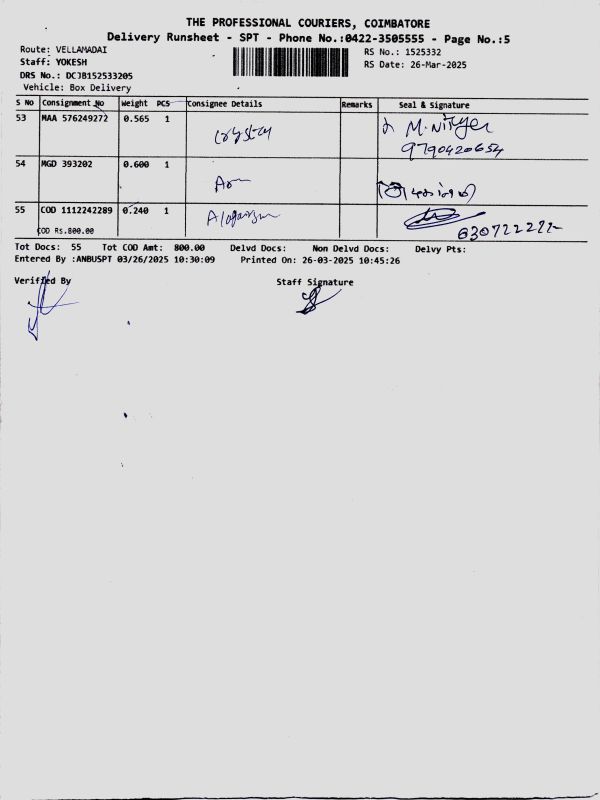 THE PROFESSIONAL COURIERS, COIMBATORE
Delivery Runsheet - SPT - Phone No.:0422-3505555 - Page No.:5
Route: VELLAMADAI
RS No.: 1525332
Staff: YOKESH
RS Date: 26-Mar-2025
DRS No.: DCJB152533205
Vehicle: Box Delivery
S No Consignment No Weight PCS Consignee Details Remarks Seal & Signature
53 MAA 576249272 0.565 1
9790420654
54 MGD 393202 0.600 1
55 COD 1112242289 0.240 1
COD Rs.800.00
Tot Docs: 55 Tot COD Amt: 800.00 Delvd Docs: Non Delvd Docs: Delvy Pts:
Entered By :ANBUSPT 03/26/2025 10:30:09 Printed On: 26-03-2025 10:45:26
Verified By Staff Signature